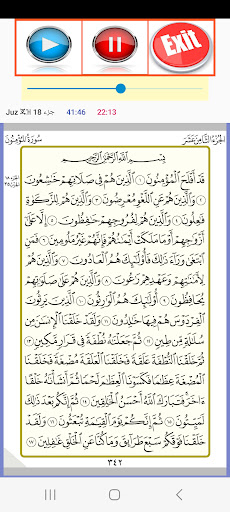 Exit
Juz जुज़ 18 جزء 41:46 22:13
سُورَةُ المُؤْمِنُونَ الجُزْءُ الثَّامِنَ عَشَرَ
بِسْمِ اللَّهِ الرَّحْمَٰنِ الرَّحِيمِ
قَدْ أَفْلَحَ الْمُؤْمِنُونَ ١ الَّذِينَ هُمْ فِي صَلَاتِهِمْ خَاشِعُونَ
٢ وَالَّذِينَ هُمْ عَنِ اللَّغْوِ مُعْرِضُونَ ٣ وَالَّذِينَ هُمْ لِلزَّكَاةِ
فَاعِلُونَ ٤ وَالَّذِينَ هُمْ لِفُرُوجِهِمْ حَافِظُونَ ٥ إِلَّا عَلَىٰ
أَزْوَاجِهِمْ أَوْ مَا مَلَكَتْ أَيْمَانُهُمْ فَإِنَّهُمْ غَيْرُ مَلُومِينَ ٦ فَمَنِ
ابْتَغَىٰ وَرَاءَ ذَٰلِكَ فَأُولَٰئِكَ هُمُ الْعَادُونَ ٧ وَالَّذِينَ هُمْ
لِأَمَانَاتِهِمْ وَعَهْدِهِمْ رَاعُونَ ٨ وَالَّذِينَ هُمْ عَلَىٰ صَلَوَاتِهِمْ
يُحَافِظُونَ ٩ أُولَٰئِكَ هُمُ الْوَارِثُونَ ١٠ الَّذِينَ يَرِثُونَ
الْفِرْدَوْسَ هُمْ فِيهَا خَالِدُونَ ١١ وَلَقَدْ خَلَقْنَا الْإِنسَانَ مِن
سُلَالَةٍ مِّن طِينٍ ١٢ ثُمَّ جَعَلْنَاهُ نُطْفَةً فِي قَرَارٍ مَّكِينٍ ١٣
ثُمَّ خَلَقْنَا النُّطْفَةَ عَلَقَةً فَخَلَقْنَا الْعَلَقَةَ مُضْغَةً فَخَلَقْنَا
الْمُضْغَةَ عِظَامًا فَكَسَوْنَا الْعِظَامَ لَحْمًا ثُمَّ أَنشَأْنَاهُ خَلْقًا
آخَرَ فَتَبَارَكَ اللَّهُ أَحْسَنُ الْخَالِقِينَ ١٤ ثُمَّ إِنَّكُم بَعْدَ ذَٰلِكَ
لَمَيِّتُونَ ١٥ ثُمَّ إِنَّكُمْ يَوْمَ الْقِيَامَةِ تُبْعَثُونَ ١٦ وَلَقَدْ
خَلَقْنَا فَوْقَكُمْ سَبْعَ طَرَائِقَ وَمَا كُنَّا عَنِ الْخَلْقِ غَافِلِينَ ١٧
٣٤٢